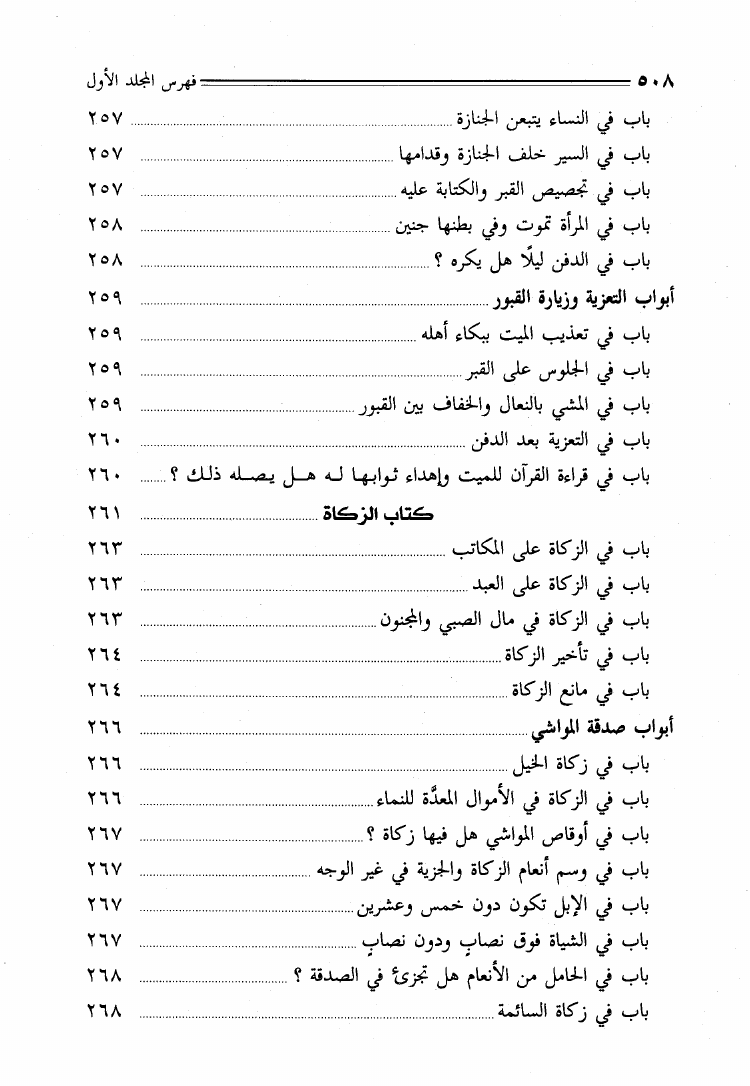 ٥٠٨ فهرس المجلد الأول
باب في النساء يتبعن الجنازة ٢٥٧
باب في السير خلف الجنازة وقدامها ٢٥٧
باب في تجصيص القبر والكتابة عليه ٢٥٧
باب في المرأة تموت وفي بطنها جنين ٢٥٨
باب في الدفن ليلًا هل يكره ؟ ٢٥٨
أبواب التعزية وزيارة القبور ٢٥٩
باب في تعذيب الميت ببكاء أهله ٢٥٩
باب في الجلوس على القبر ٢٥٩
باب في المشي بالنعال والخفاف بين القبور ٢٥٩
باب في التعزية بعد الدفن ٢٦٠
باب في قراءة القرآن للميت وإهداء ثوابها له هل يصله ذلك ؟ ٢٦٠
كتاب الزكاة ٢٦١
باب في الزكاة على المكاتب ٢٦٣
باب في الزكاة على العبد ٢٦٣
باب في الزكاة في مال الصبي والمجنون ٢٦٣
باب في تأخير الزكاة ٢٦٤
باب في مانع الزكاة ٢٦٤
أبواب صدقة المواشي ٢٦٦
باب في زكاة الخيل ٢٦٦
باب في الزكاة في الأموال المعدَّة للنماء ٢٦٦
باب في أوقاص المواشي هل فيها زكاة ؟ ٢٦٧
باب في وسم أنعام الزكاة والجزية في غير الوجه ٢٦٧
باب في الإبل تكون دون خمس وعشرين ٢٦٧
باب في الشياة فوق نصابٍ ودون نصابٍ ٢٦٧
باب في الحامل من الأنعام هل تجزئ في الصدقة ؟ ٢٦٨
باب في زكاة السائمة ٢٦٨